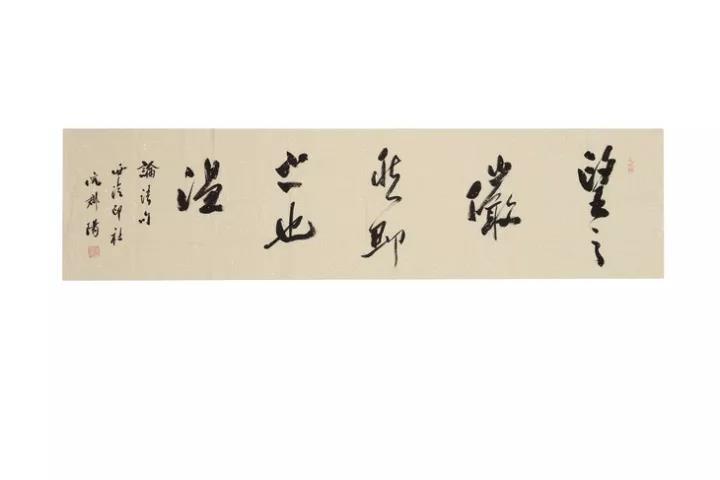 望之
儼
然即
之也
温
論語句
西泠印社